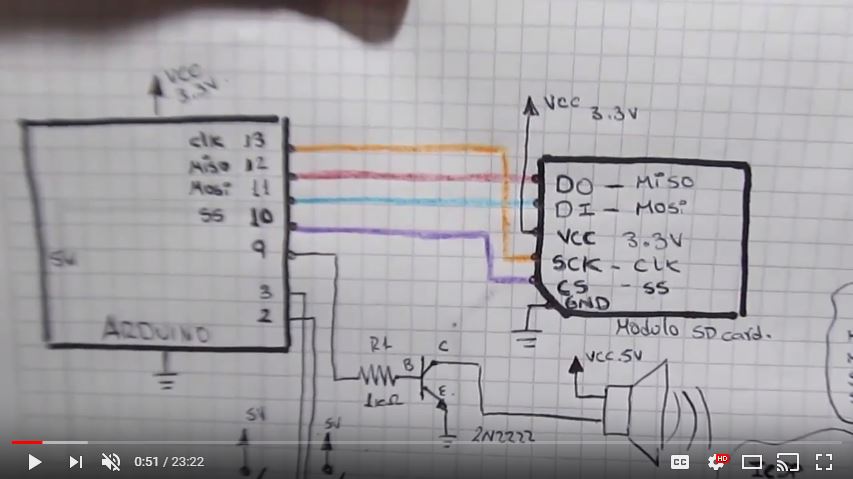 VCC
3.3V
clk 13
Miso 12
Mosi 11
SS 10
9
5V
3
2
ARDUINO
VCC 3.3V
DO - MISO
DI - MOSi
VCC 3.3V
SCK - CLK
CS - SS
GND
Modulo SD card.
R1
1KΩ
B
C
E
2N2222
VCC.5V
5V
5V
ICSP
0:51 / 23:22
CC
HD